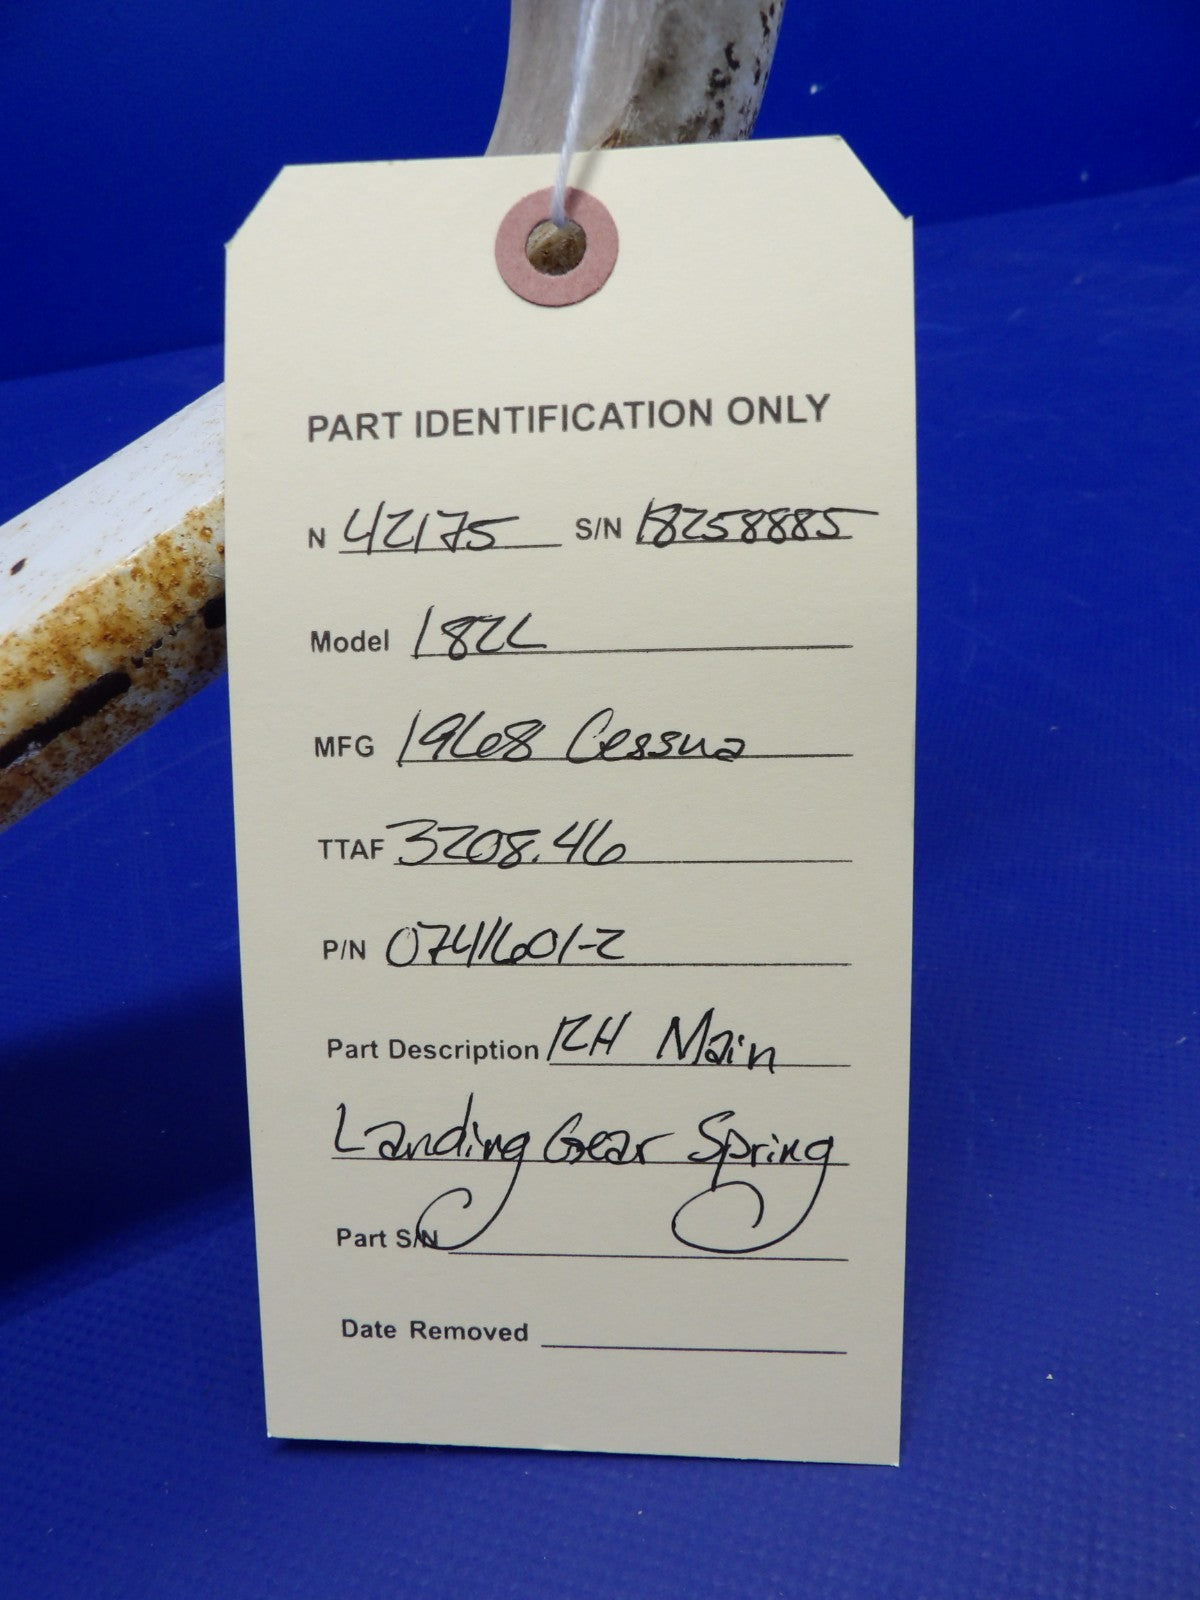 PART IDENTIFICATION ONLY
N 42175 S/N 18258885
Model 182L
MFG 1968 Cessna
TTAF 3208.46
P/N 0741601-2
Part Description RH Main
Landing Gear Spring
Part S/N
Date Removed